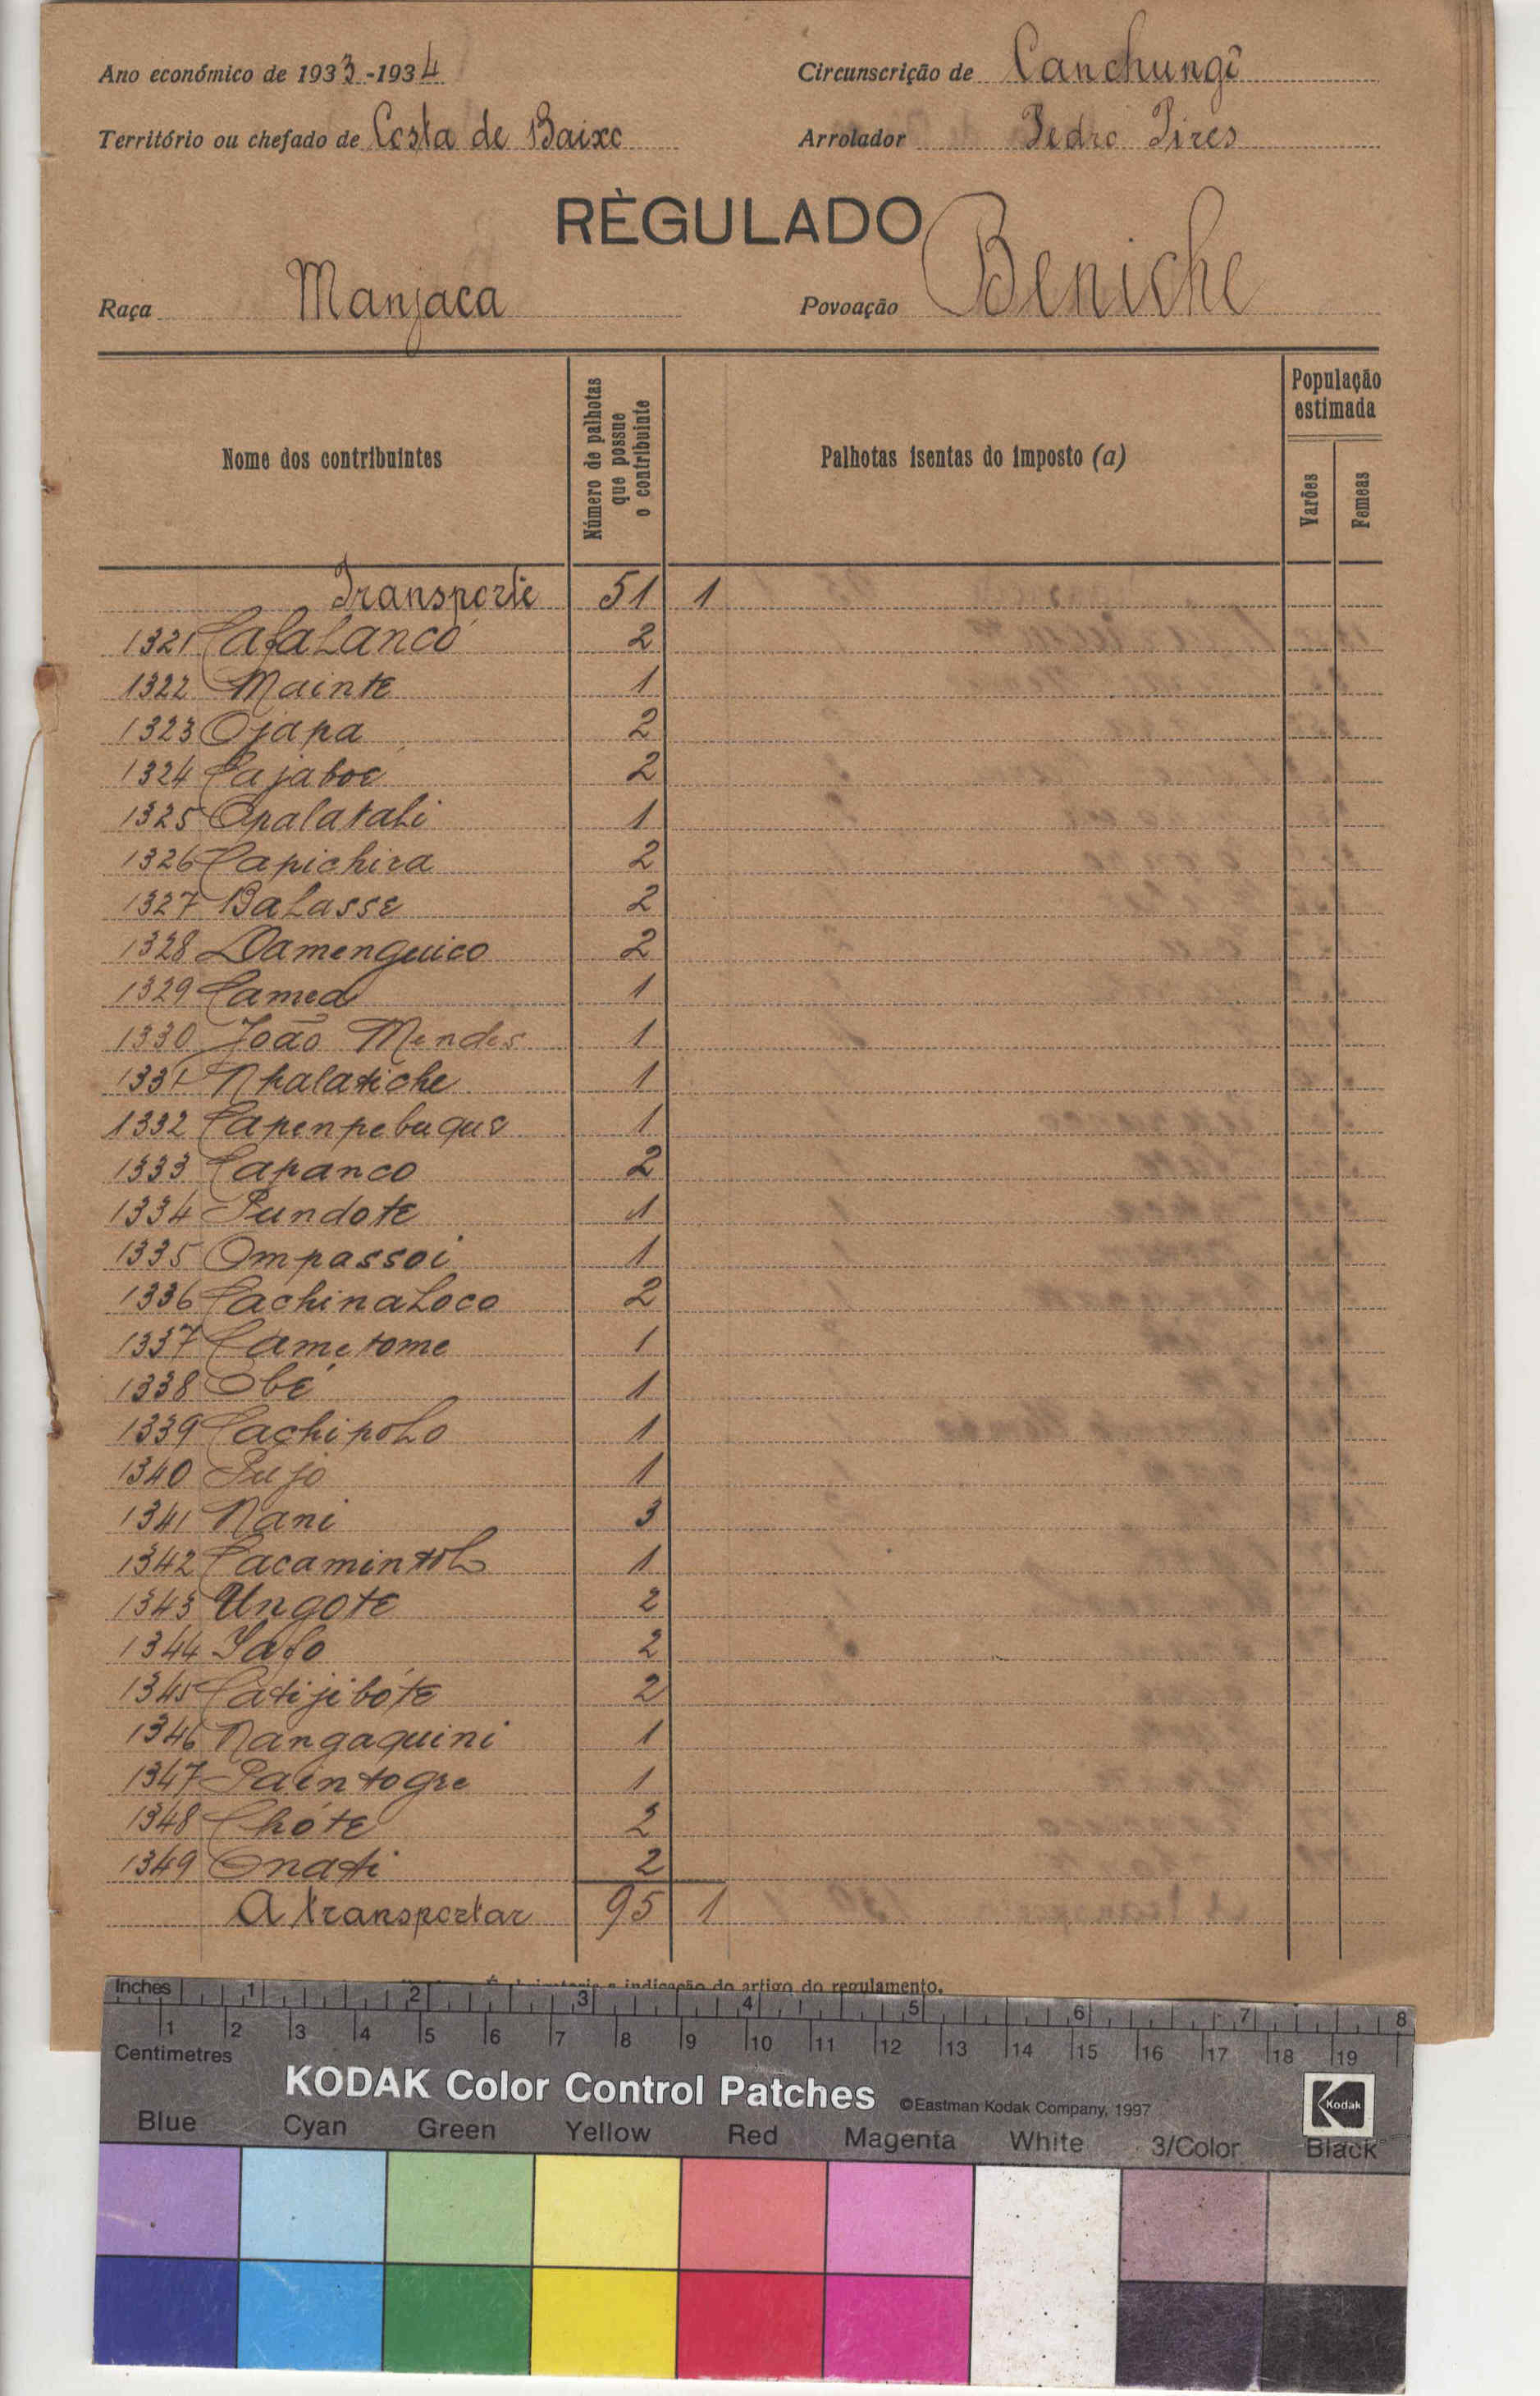 Ano económico de 1933-1934
Circunscrição de Canchungo
Território ou chefado de Costa de Baixo
Arrolador Pedro Pires
RÈGULADO
Raça Manjaca
Povoação Beniche
Nome dos contribuintes
Número de palhotas que possue o contribuinte
Palhotas isentas do imposto (a)
População estimada
Varões
Femeas
Transporte 51 1
1321 Cafalancó 2
1322 Mainte 1
1323 Ojapa 2
1324 Cajaboé 2
1325 Opalatali 1
1326 Capichira 2
1327 Balasse 2
1328 Damenguico 2
1329 Camea 1
1330 João Mendes 1
1331 Npalatiche 1
1332 Capenpebuque 1
1333 Capanco 2
1334 Pundote 1
1335 Ompassoi 1
1336 Cachinaloco 2
1337 Cametome 1
1338 Obé 1
1339 Cachipolo 1
1340 Pujo 1
1341 Nani 3
1342 Cacamintol 1
1343 Ungote 2
1344 Iafo 2
1345 Catijibóte 2
1346 Nangaquini 1
1347 Paintogre 1
1348 Chóte 2
1349 Onati 2
A transportar 95 1
indicação do artigo do regulamento.
Inches 1 2 3 4 5 6 7 8
1 2 3 4 5 6 7 8 9 10 11 12 13 14 15 16 17 18 19
Centimetres
KODAK Color Control Patches ©Eastman Kodak Company, 1997 Kodak
Blue Cyan Green Yellow Red Magenta White 3/Color Black